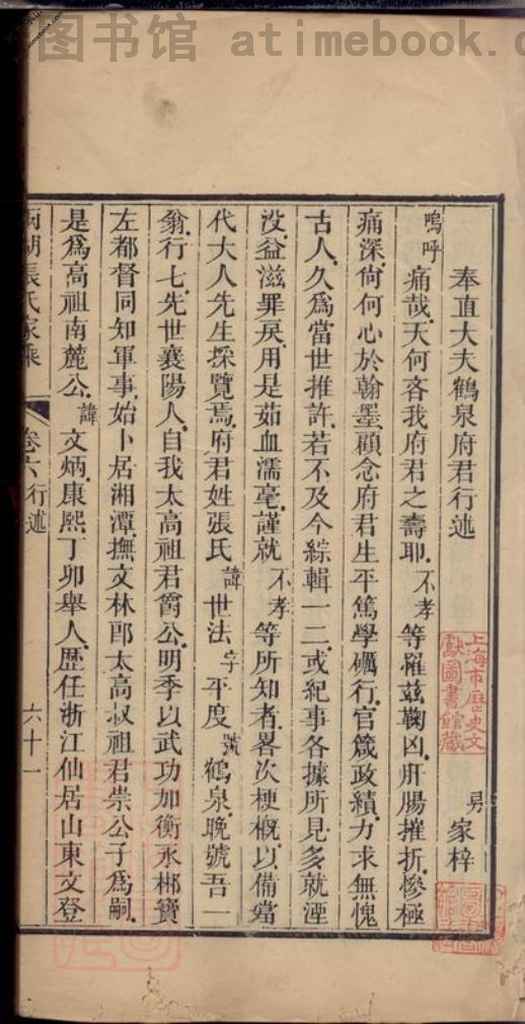 图书馆 atimebook.c
奉直大夫鶴泉府君行述
男家梓
嗚呼痛哉天何吝我府君之壽耶不孝等罹茲鞠凶肝腸摧折慘極
痛深尙何心於翰墨顧念府君生平篤學礪行官箴政績力求無愧
古人久爲當世推許若不及今綜輯一二或紀事各據所見多就湮
没益滋罪戾用是茹血濡毫謹就不孝等所知者畧次梗槪以備當
代大人先生採覽焉府君姓張氏諱世法字平度號鶴泉晚號吾一
翁行七先世襄陽人自我太高祖君賓公明季以武功加銜永郴寶
左都督同知軍事始卜居湘潭撫文林郎太高叔祖君崇公子爲嗣
是爲高祖南麓公諱文炳康熙丁卯舉人歷任浙江仙居山東文登
兩湖張氏家乘 卷六行述 六十一
上海市歷史文
獻圖書館藏